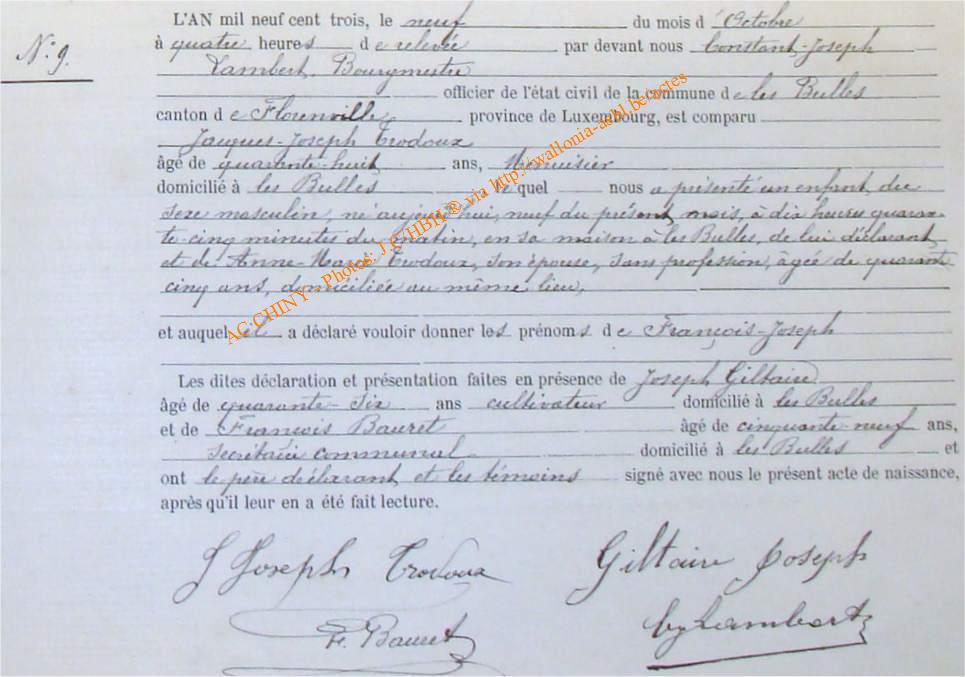 L'AN mil neuf cent trois, le neuf du mois d'Octobre
N: 9.
à quatre heures de relevée par devant nous Constant-Joseph
Lambert, Bourgmestre
officier de l'état civil de la commune de les Bulles
canton de Florenville, province de Luxembourg, est comparu
Jacques-Joseph Trodoux
âgé de quarante-huit ans, Menuisier
domicilié à les Bulles lequel nous a présenté un enfant du
sexe masculin, né aujourd'hui, neuf du présent mois, à dix heures quaran-
te-cinq minutes du matin, en sa maison à les Bulles, de lui déclarant
et de Anne-Marie Trodoux, son épouse, sans profession, âgée de quarante
cinq ans, domiciliée au même lieu,
et auquel il a déclaré vouloir donner les prénoms de François-Joseph
Les dites déclaration et présentation faites en présence de Joseph Giltaire
âgé de quarante-six ans cultivateur domicilié à les Bulles
et de François Bauret âgé de cinquante-neuf ans,
secrétaire communal domicilié à les Bulles et
ont le père déclarant et les témoins signé avec nous le présent acte de naissance,
après qu'il leur en a été fait lecture.
J Joseph Trodoux Giltaire Joseph
F. Bauret Lambert
AC:CHINY - Photos: J.C HBH ® via http://wallonia-asbl.be/actes